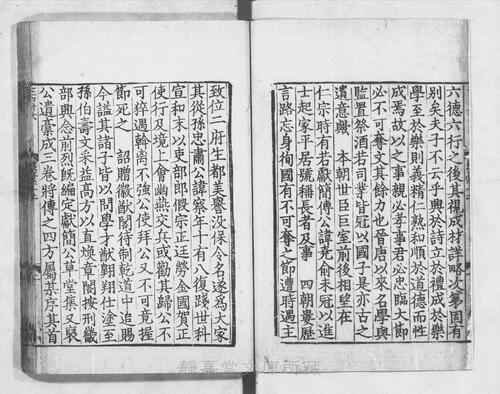 六德六行之後其視成材詳略次第固有
別矣夫子不云乎興於詩立於禮成於樂
學至於樂則義精仁熟和順於道德而性
成焉故以之事親必孝事君必忠臨大節
必不可奪文其餘力也晉唐以來名學與
監置祭酒若司業皆冠以國子是亦古之
遺意歟　本朝世臣巨室前後相望在
仁宗時有若獻簡傅公諱堯俞未冠以進
士起家平居號稱長者及事　四朝曼歷
言路忘身徇國有不可奪之節遭時遇主
致位二府生都美譽沒保令名遂爲大家
其從孫忠肅公諱察年十有八復踐世科
宣和末以吏部郎假宗正廷勞金國賀正
使行及境上會幽燕交兵或勸其歸公不
可猝遇斡离不強公使拜公又不可竟握
節死之　詔贈徽猷閣待制乾道中追賜
今謚其諸子皆以問學才猷翱翔仕塗至
孫伯壽文采益高方以直煥章閣按刑畿
部興念前烈旣編定獻簡公草堂集又裒
公遺藁成三卷將傳之四方屬某序其首
靜嘉堂文庫所藏